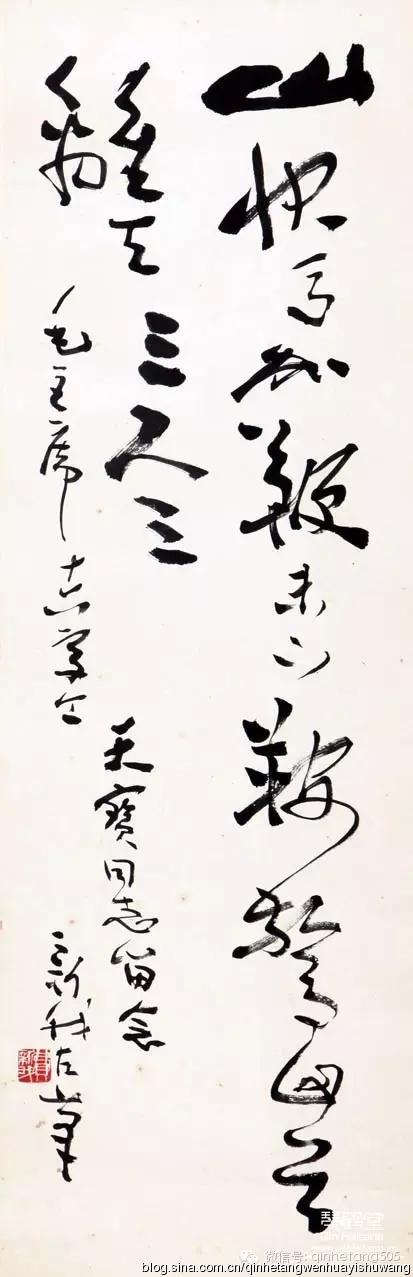 山快馬加鞭未下鞍驚回首
離天三尺三
毛主席十六字令
天寶同志留念
新我左筆
微信号: qinhetang505
blog.sina.com.cn/qinhetangwenhuayishuwang